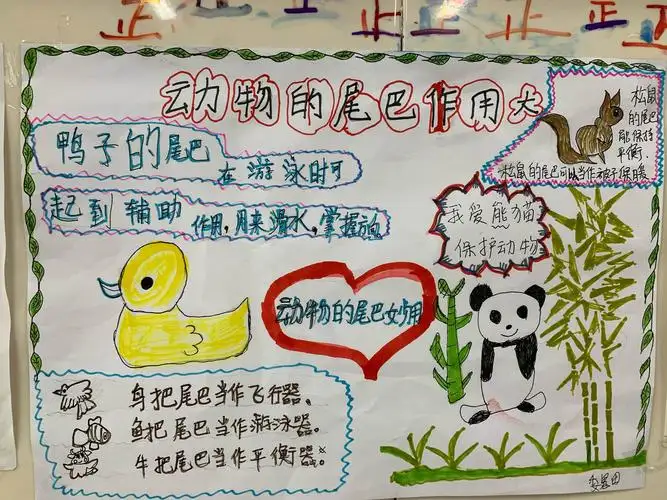 正 正 正 正 正
动物的尾巴作用大
鸭子的尾巴
在游泳时可
起到辅助
作用,用来滑水,掌握方向
松鼠
的尾巴
能保持
平衡.
松鼠的尾巴可以当作被子保暖
我爱熊猫
保护动物
动物的尾巴妙用
鸟把尾巴当作飞行器。
鱼把尾巴当作游泳器。
牛把尾巴当作平衡器。